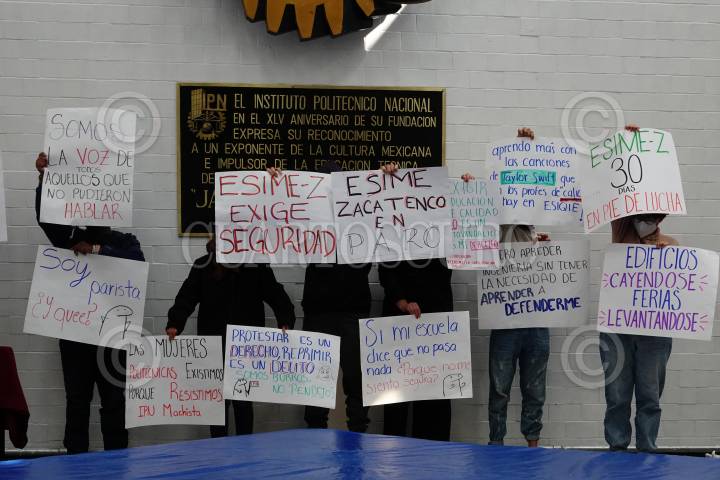 IPN
EL INSTITUTO POLITECNICO NACIONAL
EN EL XLV ANIVERSARIO DE SU FUNDACION
EXPRESA SU RECONOCIMIENTO
A UN EXPONENTE DE LA CULTURA MEXICANA
E IMPULSOR DE LA EDUCACION TECNICA
SOMOS
LA VOZ DE
TODOS
AQUELLOS QUE
NO PUDIERON
HABLAR
ESIME-Z
EXIGE
SEGURIDAD
ESIME
ZACATENCO
EN
PARO
EXIGIR
EDUCACIÓN
DE CALIDAD
NO ES
aprendo más con
las canciones
de Taylor Swift
que con
los profes de calculo
hay en ESIQIE
ESIME-Z
30
DIAS
EN PIE DE LUCHA
Soy parista
¿y que es?
Las Mujeres
Politecnicas Existimos
Porque Resistimos
IPN Machista
PROTESTAR ES UN
DERECHO, REPRIMIR
ES UN DELITO
SOMOS BURROS
NO PENDEJOS
Si mi escuela
dice que no pasa
nada ¿Porque no me
siento segura?
APRENDER
INGENIERÍA SIN TENER
LA NECESIDAD DE
APRENDER A
DEFENDERME
EDIFICIOS
CAYENDOSE
FERIAS
LEVANTANDOSE